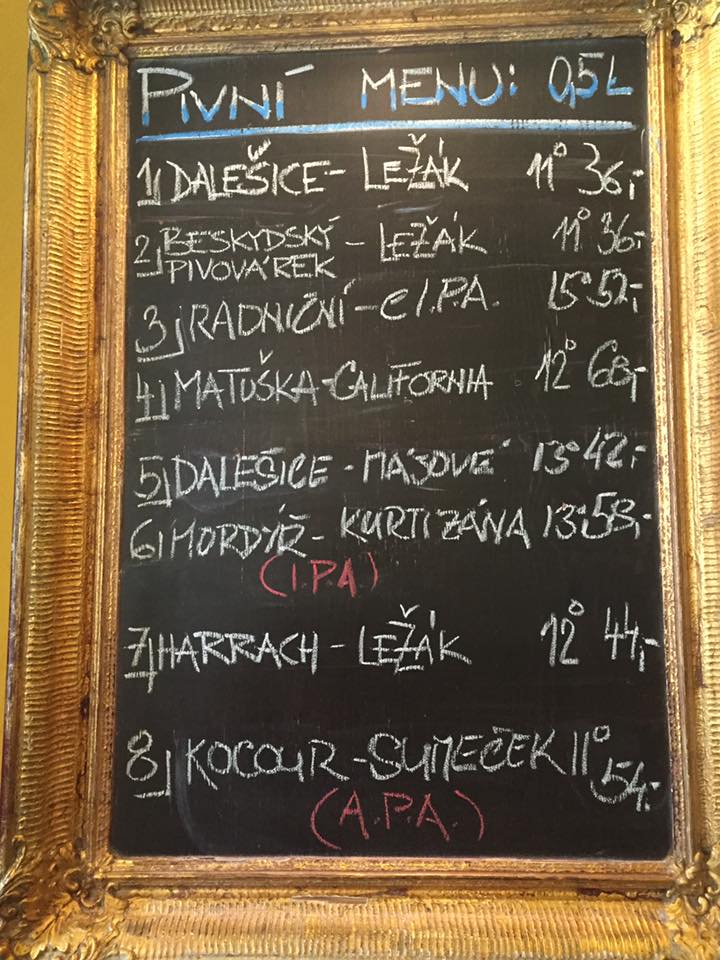 PIVNÍ MENU: 0,5L
1) DALEŠICE - LEŽÁK 11° 36,-
2) BESKYDSKÝ PIVOVÁREK - LEŽÁK 11° 36,-
3) RADNIČNÍ - C I.P.A. 15° 52,-
4) MATUŠKA - CALIFORNIA 12° 68,-
5) DALEŠICE - MÁJOVÉ 13° 42,-
6) MORDÝŘ - KURTIZÁNA 13° 58,-
(I.P.A)
7) HARRACH - LEŽÁK 12° 44,-
8) KOCOUR - SUMEČEK 11° 54,-
(A.P.A.)